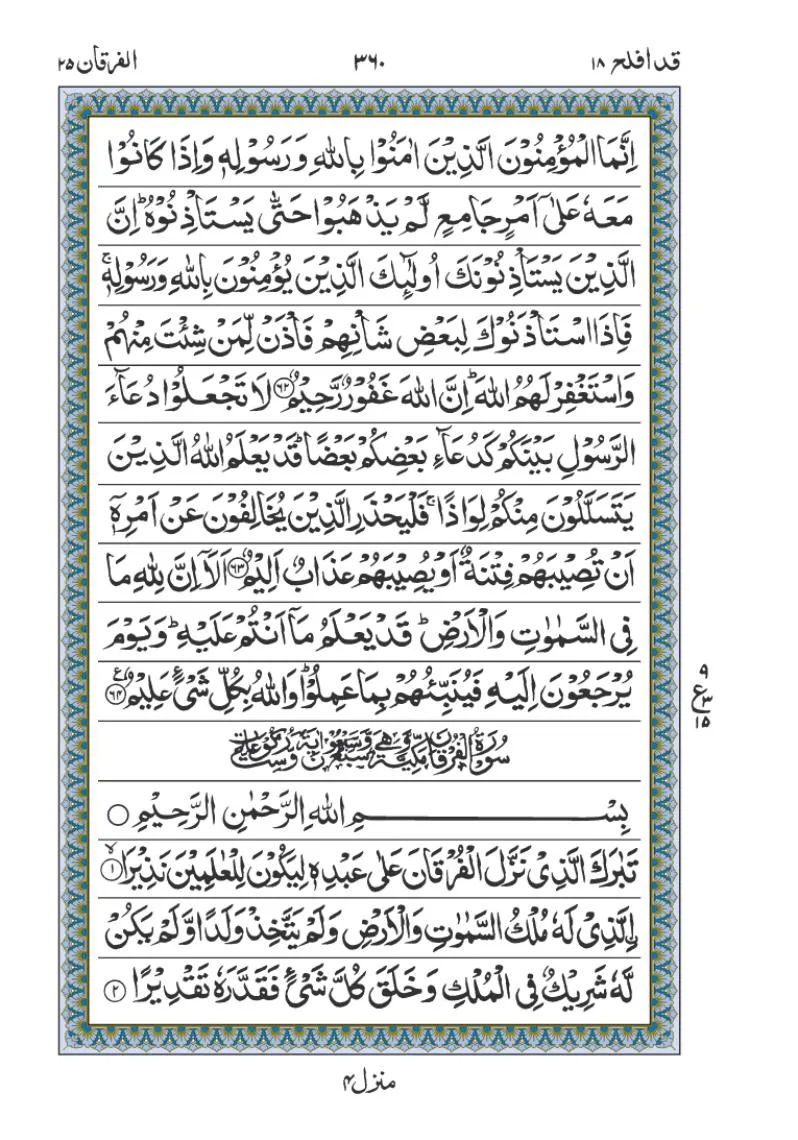 قد افلح ١٨
٣٦٠
الفرقان ٢٥
اِنَّمَا الْمُؤْمِنُوْنَ الَّذِيْنَ اٰمَنُوْا بِاللّٰهِ وَرَسُوْلِهٖ وَاِذَا كَانُوْا
مَعَهٗ عَلٰٓى اَمْرٍ جَامِعٍ لَّمْ يَذْهَبُوْا حَتّٰى يَسْتَاْذِنُوْهُ ؕ اِنَّ
الَّذِيْنَ يَسْتَاْذِنُوْنَكَ اُولٰٓئِكَ الَّذِيْنَ يُؤْمِنُوْنَ بِاللّٰهِ وَرَسُوْلِهٖ ۚ
فَاِذَا اسْتَاْذَنُوْكَ لِبَعْضِ شَاْنِهِمْ فَاْذَنْ لِّمَنْ شِئْتَ مِنْهُمْ
وَاسْتَغْفِرْ لَهُمُ اللّٰهَ ؕ اِنَّ اللّٰهَ غَفُوْرٌ رَّحِيْمٌ ﴿٦٢﴾ لَا تَجْعَلُوْا دُعَآءَ
الرَّسُوْلِ بَيْنَكُمْ كَدُعَآءِ بَعْضِكُمْ بَعْضًا ؕ قَدْ يَعْلَمُ اللّٰهُ الَّذِيْنَ
يَتَسَلَّلُوْنَ مِنْكُمْ لِوَاذًا ۚ فَلْيَحْذَرِ الَّذِيْنَ يُخَالِفُوْنَ عَنْ اَمْرِهٖۤ
اَنْ تُصِيْبَهُمْ فِتْنَةٌ اَوْ يُصِيْبَهُمْ عَذَابٌ اَلِيْمٌ ﴿٦٣﴾ اَلَاۤ اِنَّ لِلّٰهِ مَا
فِى السَّمٰوٰتِ وَالْاَرْضِ ؕ قَدْ يَعْلَمُ مَاۤ اَنْتُمْ عَلَيْهِ ؕ وَيَوْمَ
يُرْجَعُوْنَ اِلَيْهِ فَيُنَبِّئُهُمْ بِمَا عَمِلُوْا ؕ وَاللّٰهُ بِكُلِّ شَىْءٍ عَلِيْمٌ ﴿٦٤﴾
٩
ع٣
١٥
سُوْرَةُ الْفُرْقَانِ مَكِّيَّةٌ وَّهِىَ سَبْعٌ وَّسَبْعُوْنَ اٰيَةً وَّسِتُّ رُكُوْعَاتٍ
بِسْمِ اللّٰهِ الرَّحْمٰنِ الرَّحِيْمِ ○
تَبٰرَكَ الَّذِىْ نَزَّلَ الْفُرْقَانَ عَلٰى عَبْدِهٖ لِيَكُوْنَ لِلْعٰلَمِيْنَ نَذِيْرَا ۙ﴿١﴾
ۨالَّذِىْ لَهٗ مُلْكُ السَّمٰوٰتِ وَالْاَرْضِ وَلَمْ يَتَّخِذْ وَلَدًا وَّلَمْ يَكُنْ
لَّهٗ شَرِيْكٌ فِى الْمُلْكِ وَخَلَقَ كُلَّ شَىْءٍ فَقَدَّرَهٗ تَقْدِيْرًا ﴿٢﴾
منزل ٤